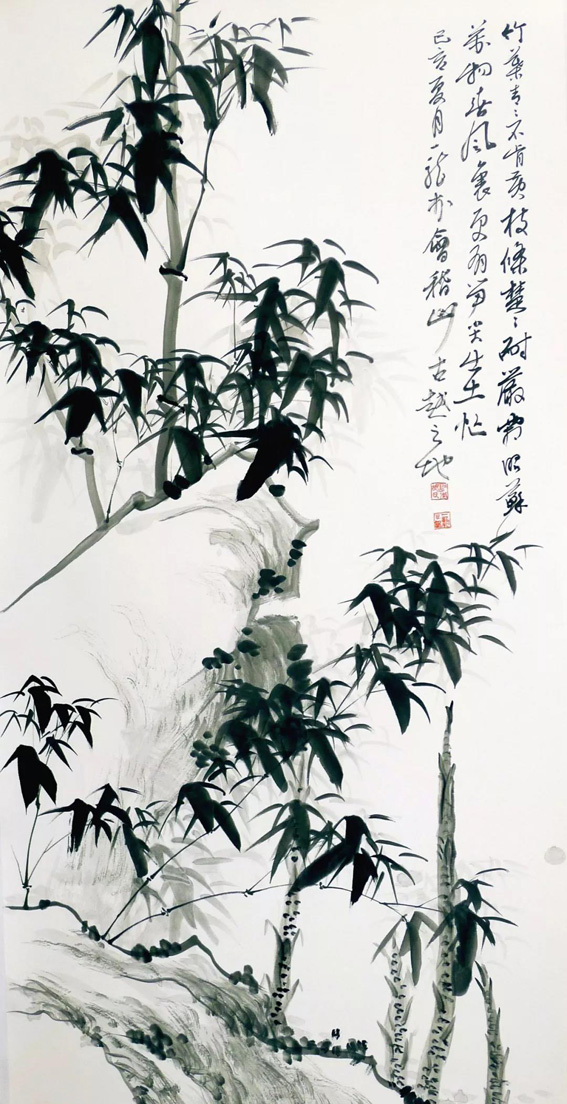 竹葉青青不肯黃枝條楚楚耐嚴霜昭蘇
萬物春風裏更有笋尖出土忙
己亥夏月一龍於會稽山古越之地